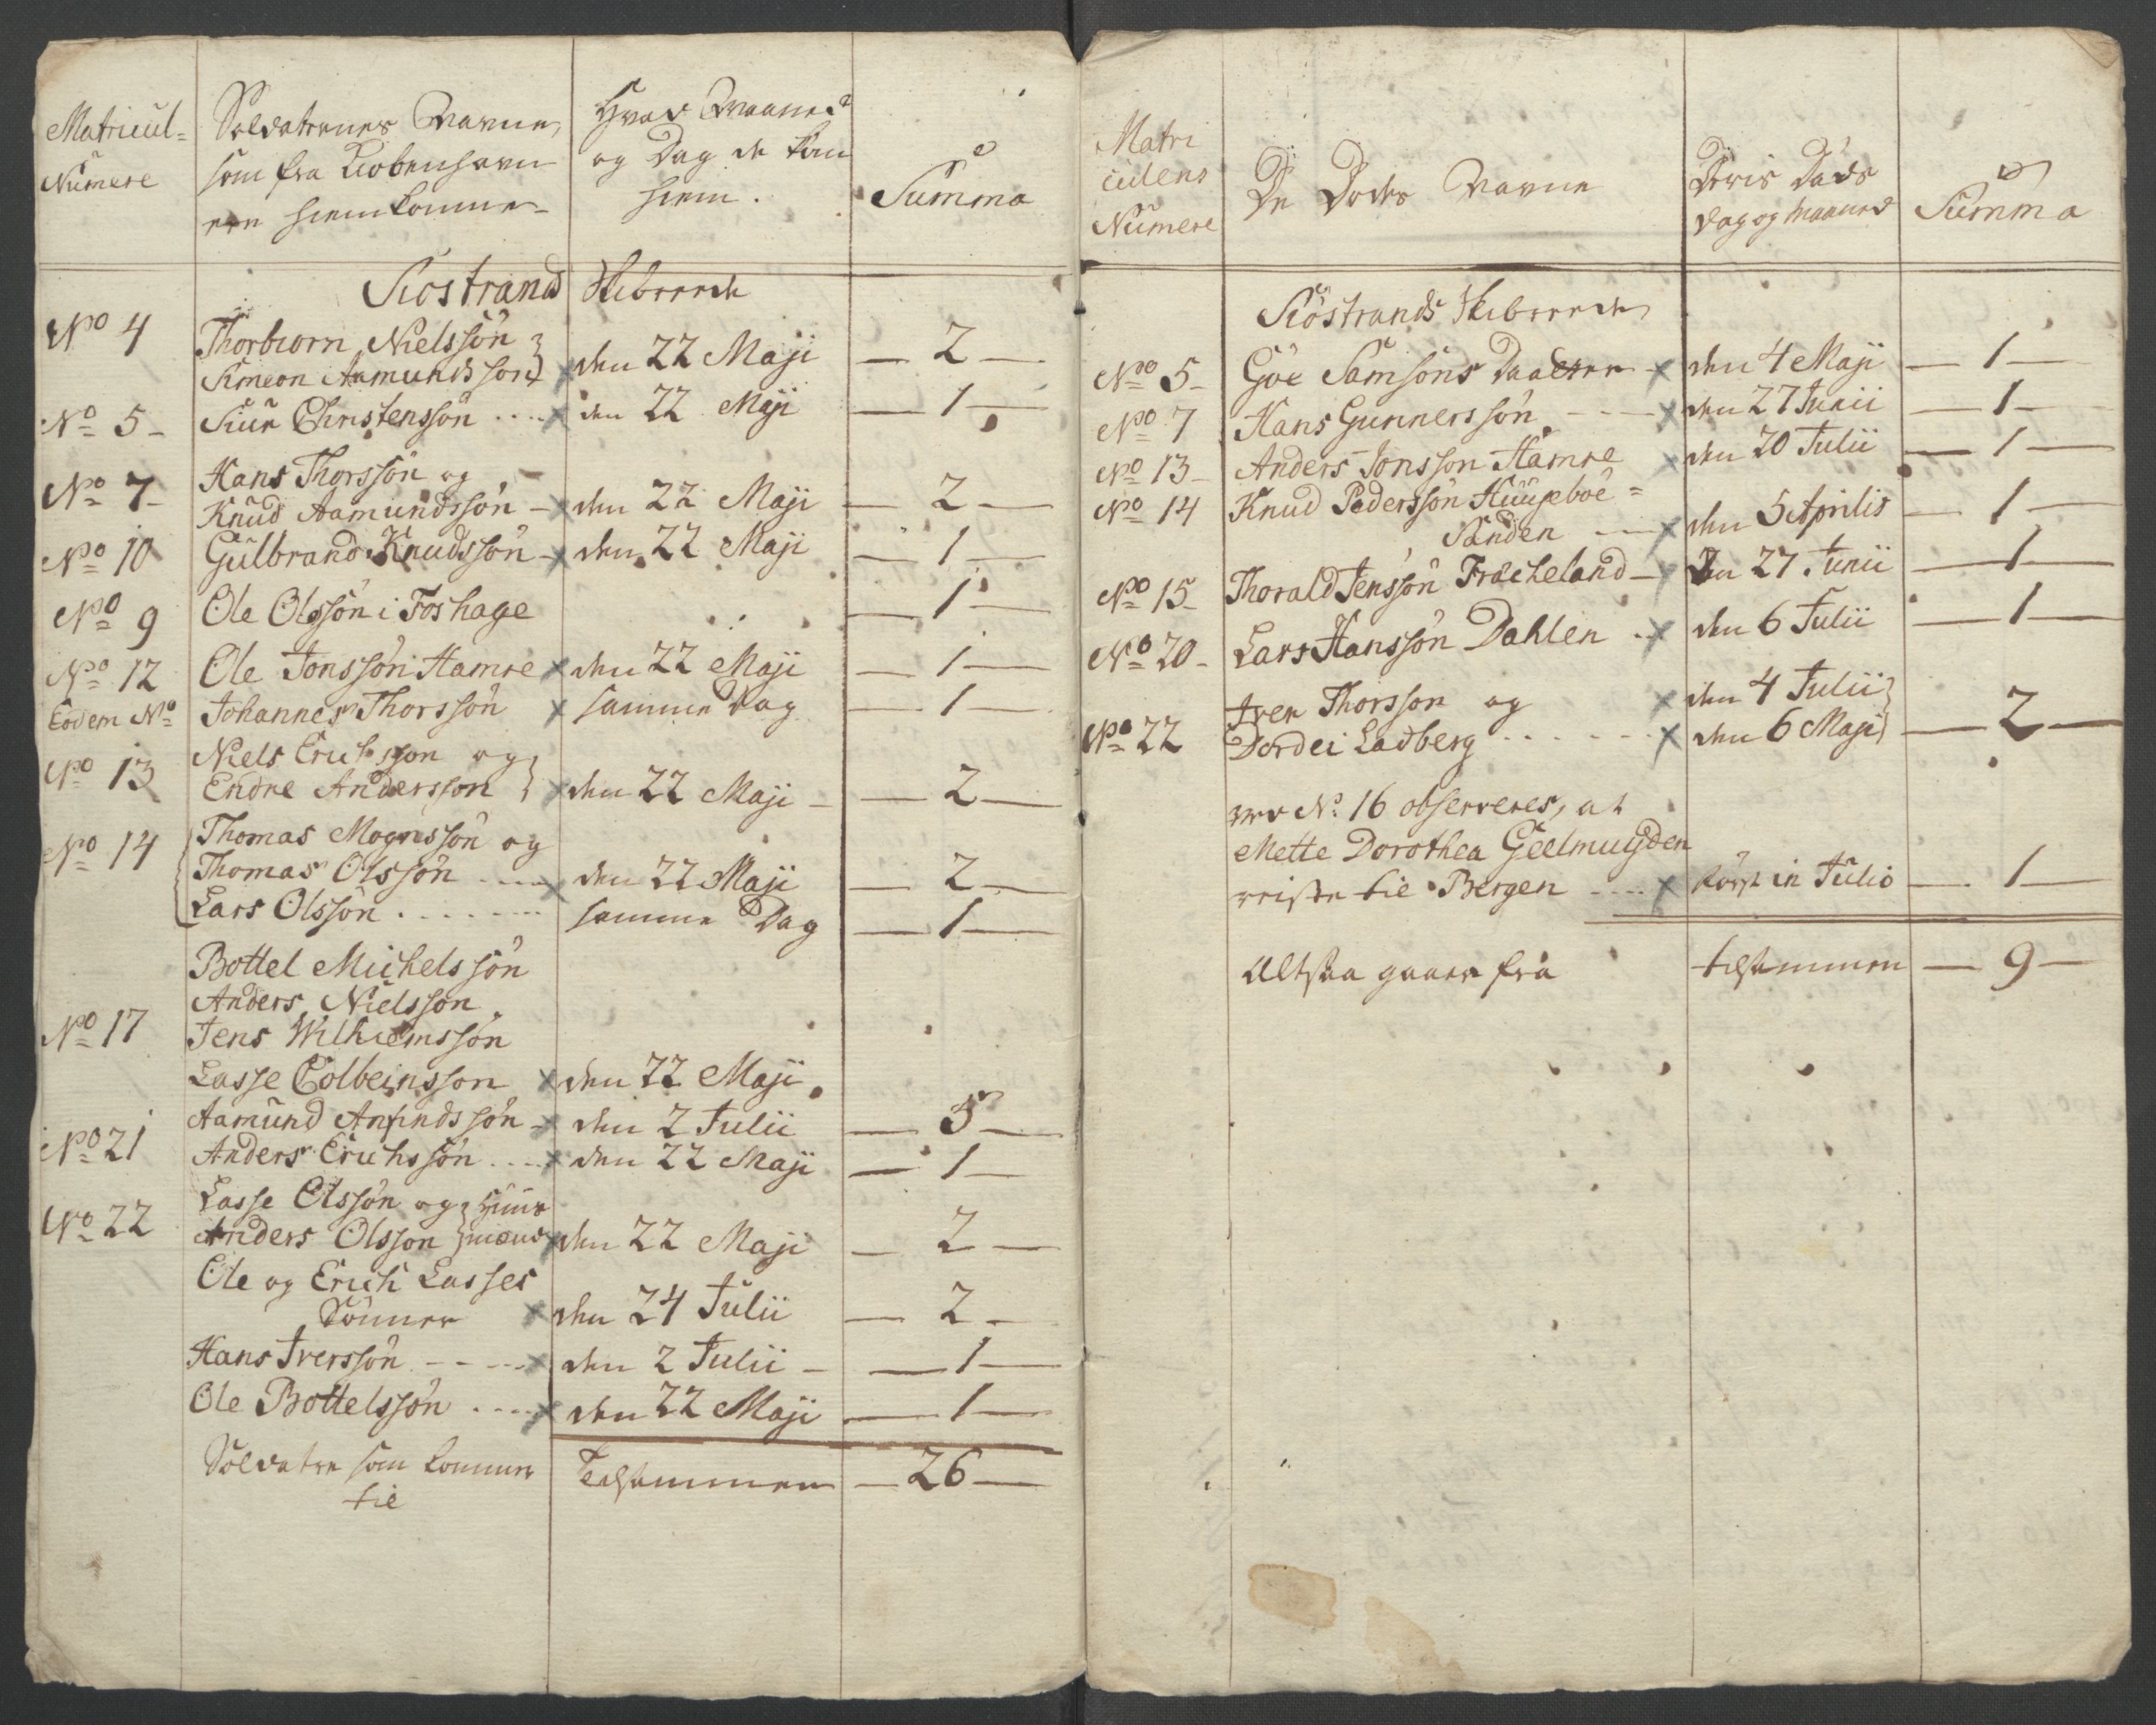 Matricul-
Numere
Soldaternes Navne,
som fra Kiøbenhavn
ere hiemkomne
Hvad Maaned
og Dag de kom
hiem.
Summa
Siostrand Skibreede
No 4 Thorbiorn Nielssön
Simeon Aamundssön den 22 Maji 2
No 5 Siur Christenssön den 22 Maji 1
No 7 Hans Thorssön og
Knud Aamundssön den 22 Maji 2
No 10 Gulbrand Knudssön den 22 Maji 1
No 9 Ole Olssön i Foshage 1
No 12 Ole Jonssön Hamre den 22 Maji 1
Eodem No Johannes Thorssön samme Dag 1
No 13 Niels Erichsson og
Endre Andersson den 22 Maji 2
No 14 Thomas Mognssön og
Thomas Olssön den 22 Maji 2
Lars Olssön samme Dag 1
Bottel Michelssön
Anders Nielsson
No 17 Jens Wilhiemssön
Lasse Colbeinsson den 22 Maji
Aamund Anfindssön den 2 Julii 5
No 21 Anders Erichssön den 22 Maji 1
No 22 Lasse Olssön og Huus
Anders Olsson mænd den 22 Maji 2
Ole og Erich Lasses
Sönner den 24 Julii 2
Hans Iverssön den 2 Julii 1
Ole Bottelssön den 22 Maji 1
Soldater som kommer Tilsammen 26
til
Matri
culens
Numere
De Dödes Navne
Deris Döds
dag og Maaned
Summa
Siöstrands Skibreede
No 5 Göe Samsöns Daatter den 4 Maji 1
No 7 Hans Gunnerssön den 27 Junii 1
No 13 Anders Jonsson Hamre den 20 Julii 1
No 14 Knud Pederssön Huupeboe=
Sanden den 5 Aprilis 1
No 15 Thorald Jenssön Frecheland den 27 Junii 1
No 20 Lars Hanssön Dahlen den 6 Julii 1
Iver Thorsson og den 4 Julii
No 22 Dordei Ladberg den 6 Maji 2
ved No. 16 observeres, at
Mette Dorothea Geelmuyden
reiste til Bergen först in Julio 1
Altsaa gaaer fra tilsammen 9